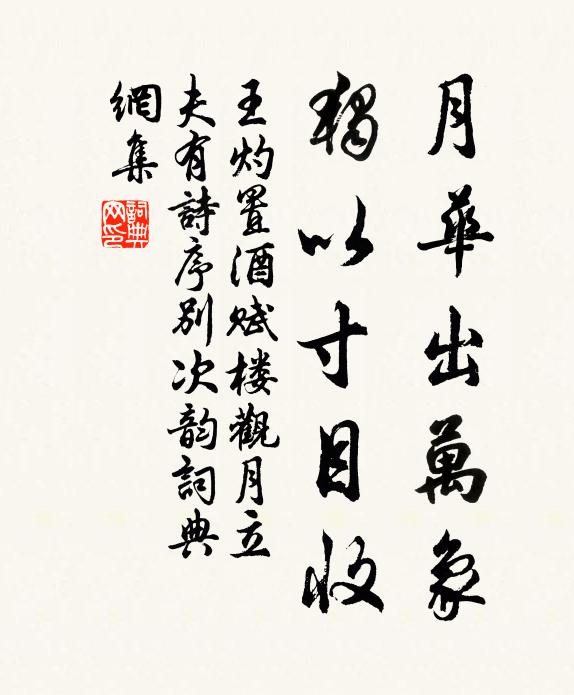 月華出萬象
獨以寸目收
王灼置酒赋楼觀月立
夫有詩序别次韵詞典
網集
詞典网印